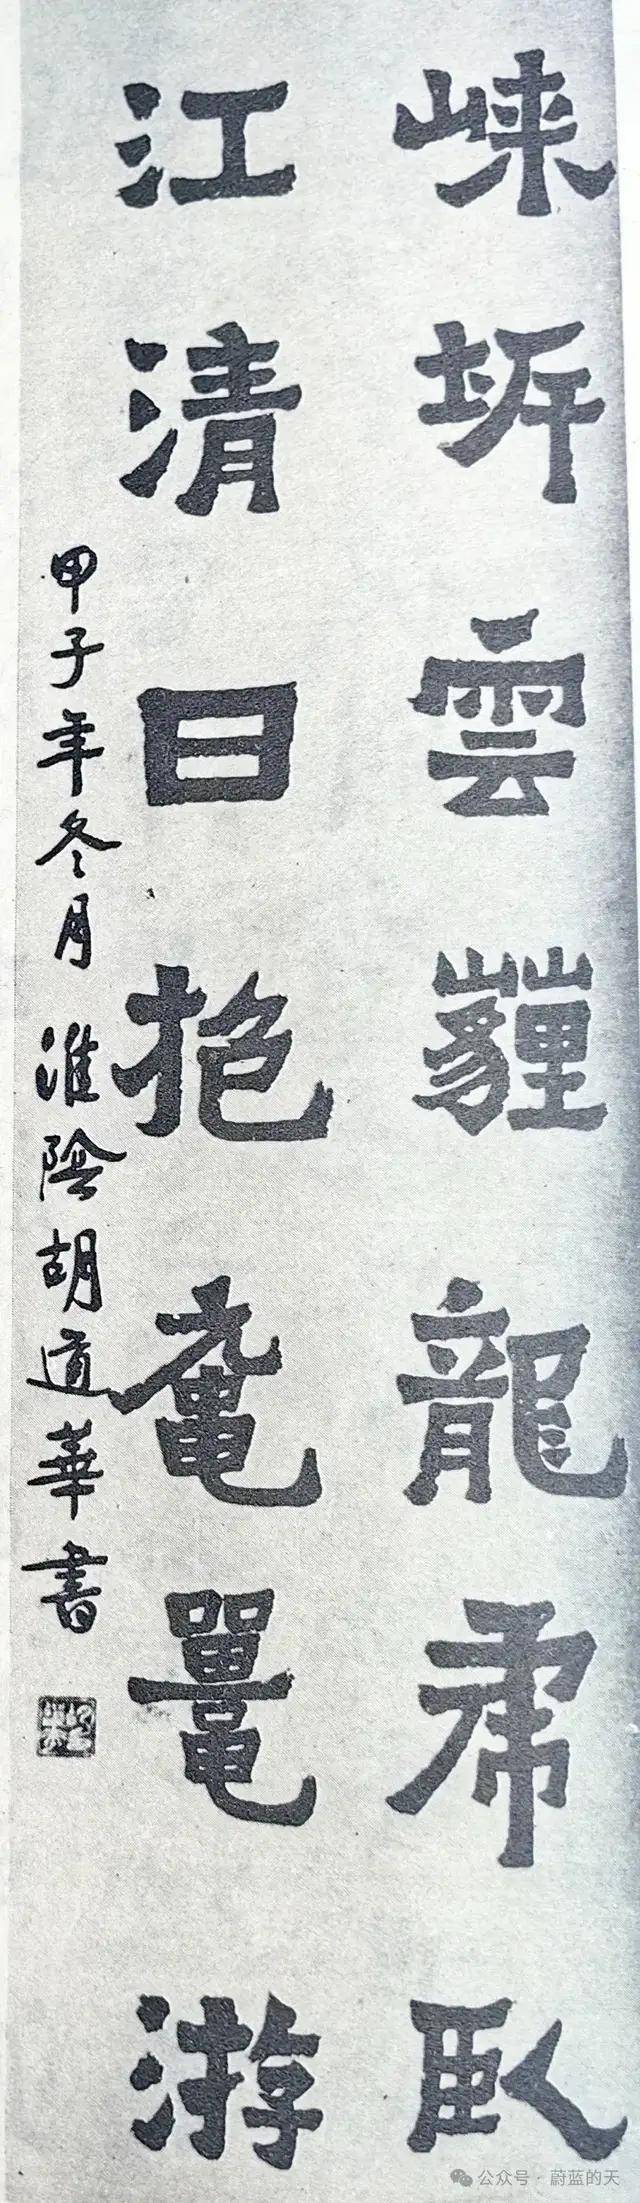 峽坼雲霾龍虎臥
江清日抱黿鼉游
甲子年冬月 淮陰胡道華書
公众号·蔚蓝的天